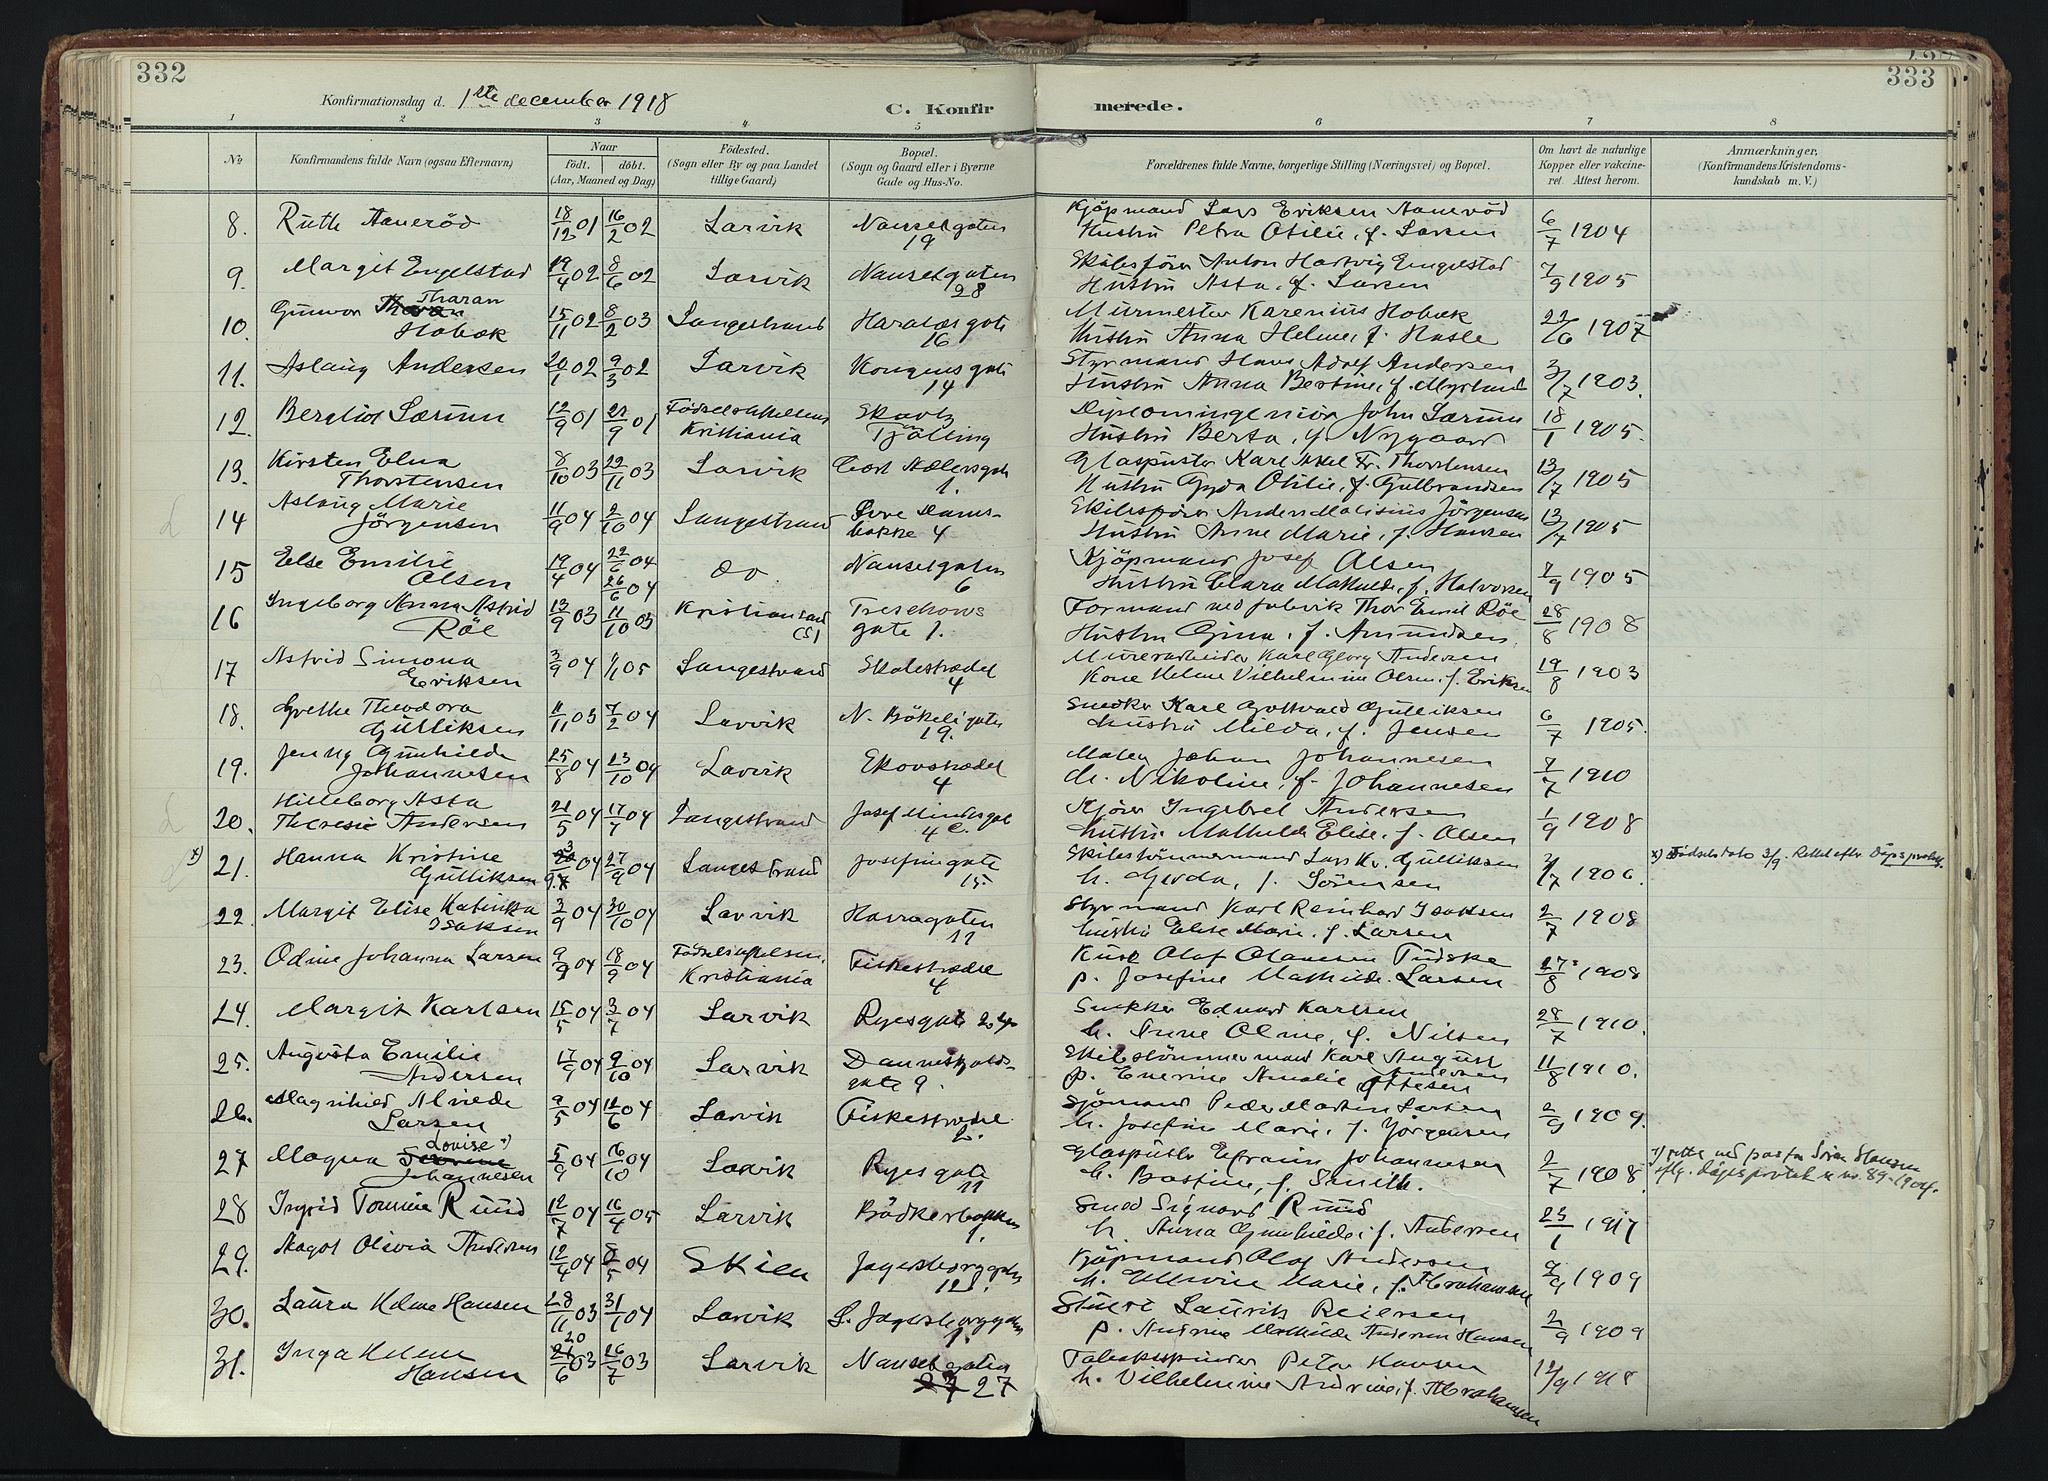 332
333
Konfirmationsdag d. 1ste december 1918
C. Konfir merede.
1 2 3 4 5 6 7 8
No
Konfirmandens fulde Navn (ogsaa Efternavn)
Naar
født. døbt.
(Aar, Maaned og Dag)
Fødested.
(Sogn eller By og paa Landet
tillige Gaard)
Bopæl.
(Sogn og Gaard eller i Byerne
Gade og Hus-No.
Forældrenes fulde Navne, borgerlige Stilling (Næringsvei) og Bopæl.
Om havt de naturlige
Kopper eller vakcine-
ret. Attest herom.
Anmærkninger.
(Konfirmandens Kristendoms-
kundskab m. V.)
8. Ruth Aanerød 18/12 01 16/2 02 Larvik Nansetgaten 19 Kjøpmand Lars Eriksen Aanerød 6/7 1904
Hustru Petra Otilie, f. Larsen
9. Margit Engelstad 19/4 02 8/6 02 Larvik Nansetgaten 28 Skibsfører Anton Hartvig Engelstad 7/9 1905
Hustru Asta, f. Larsen
10. Gunvor Tharan Hobæk 15/11 02 8/2 03 Langestrand Haraldsgate 16 Murmester Karenius Hobæk 22/6 1907
Hustru Anna Helene, f. Hasle
11. Aslaug Andersen 20/1 02 9/3 02 Larvik Kongensgate 14 Styrmand Hans Adolf Andersen 3/7 1903.
Hustru Anna Bertine, f. Myrland
12. Bergliot Særum 12/9 01 /9 01 Fødselsstiftelsen Kristiania Tjølling Diplomingeniør John Særum 18/1 1905.
Hustru Berta, f. Nygaard
13. Kirsten Elna Thorstensen 8/10 03 29/11 03 Larvik 1. Glaspuster Karl Axel Fr. Thorstensen 13/7 1905
Hustru Gyda Otilie, f. Gulbrandsen
14 Aslaug Marie Jørgensen 11/9 04 2/10 04 Langestrand Øvre Damsbakke 4 Skibsfører Anders Jørgensen 13/7 1905
Hustru Anne Marie, f. Hansen
15 Else Emilie Olsen 19/4 04 22/6 04 26/6 04 do Nansetgaten 6 Kjøpmand Josef Olsen 7/9 1905
Hustru Clara Mathilde, f. Halvorsen
16 Ingeborg Anna Astrid Røe 13/9 03 11/10 03 Kristiansand (S) Treschows gate 1. Formand ved fabrik Thor Emil Røe 28/8 1908
Hustru Gina, f. Amundsen
17 Astrid Simona Eriksen 3/9 04 1/1 05 Langestrand Skolestrædet 4 Murerarbeider Karl Georg Andersen 19/8 1903
Kone Helene Vilhelmine Olsen, f. Eriksen
18. Grethe Theodora Gulliksen 11/11 03 7/2 04 Larvik N. Bøkeligaten 19. Snedker Karl Gottvald Gulliksen 6/7 1905.
Hustru Milda, f. Jensen
19. Jenny Gunhilde Johannesen 25/8 04 23/10 04 Larvik Skovstrædet 4 Maler Johan Johannesen 7/7 1910
h. Nikoline, f. Johannesen
20. Hilleborg Asta Theresie Andersen 21/5 04 17/7 04 Langestrand Josef Mindesgt. 4 c. Kjører Ingebret Andersen 1/9 1908
Hustru Mathilde Elise, f. Olsen
x) 21. Hanna Kristine Gulliksen 3/9 04 27/9 04 Langestrand Josefinegate 15. Skibstømmermand Lars Kr. Gulliksen /7 1906.
h. Gerda, f. Sørensen
x) Fødselsdato 3/9. Rettet efter Døpsprotok.
22. Margit Elise Katinka Isaksen 3/9 04 30/10 04 Larvik Havnegaten 11 Styrmand Karl Reinhard Isaksen 2/7 1908
hustru Elise Marie, f. Larsen
23. Odine Johanna Larsen 9/9 04 18/9 04 Fødselsstiftelsen, Kristiania Fiskestrædet 4 Kusk Olaf Olavesen Tudske 27/8 1908
p. Josefine Mathilde Larsen
24. Margit Karlsen 15/5 04 3/7 04 Larvik Ryesgate Snekker Edvard Karlsen 28/7 1910.
h. Anne Oline, f. Nilsen
25. Augusta Emilie Andersen 17/9 04 9/10 04 Larvik Danneskjoldsgate 9. Skibstømmermand Karl August Andersen 11/8 1910.
p. Enerine Amalie Ottesen
26. Magnhild Alvide Larsen 9/5 04 12/6 04 Larvik Fiskestrædet 2. Sjømand Peder Martin Larsen 2/9 1909.
h. Josefine Marie, f. Jørgensen
27 Magna Louise x) Johannesen 5/9 04 16/10 04 Larvik Ryesgate 11 Glaspuster Efraim Johannesen 2/7 1908.
h. Bastine, f. Smith.
x) rettet ved pastor Søren Hansen
eftr. Døpsprotok n no. 89 - 1904.
28 Ingrid Tomine Ruud 12/7 04 16/4 05 Larvik Bødkerbakken 1. Smed Sigvard Ruud 23/1 1917
h. Anna Gunhilde, f. Andersen
29. Magot Olivia Andersen 12/4 04 8/5 04 Skien Jegersborggaten 12 Kjøpmand Olaf Andersen 9/9 1909
h. Ellevine Marie, f. Abrahamsen
30. Laura Helene Hansen 28/11 03 31/1 04 Larvik L. Jegersborggaten 1. Stuert Laurits Reiersen 2/9 1909
p. Andrine Mathilde Andersen Hansen
31. Inga Helene Hansen 20/6 03 26/7 03 Larvik Nansetgaten 27 Tobakspinder Peter Hansen 12/9 1918
h. Vilhelmine Andrine, f. Abrahamsen